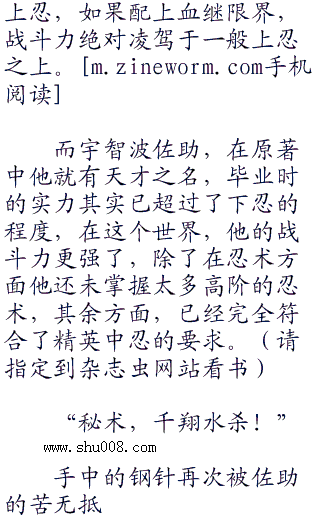 上忍，如果配上血继限界，
战斗力绝对凌驾于一般上忍
之上。[m.zineworm.com手机
阅读]
而宇智波佐助，在原著
中他就有天才之名，毕业时
的实力其实已超过了下忍的
程度，在这个世界，他的战
斗力更强了，除了在忍术方
面他还未掌握太多高阶的忍
术，其余方面，已经完全符
合了精英中忍的要求。（请
指定到杂志虫网站看书）
“秘术，千翔水杀！”
www.shu008.com
手中的钢针再次被佐助
的苦无抵